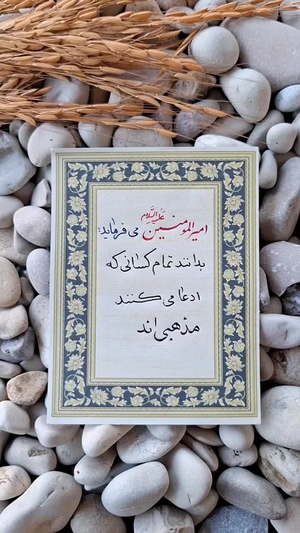 امیرالمومنین علیه‌السلام می فرماید:
بدانند تمام کسانی که
ادعا می کنند
مذهبی اند